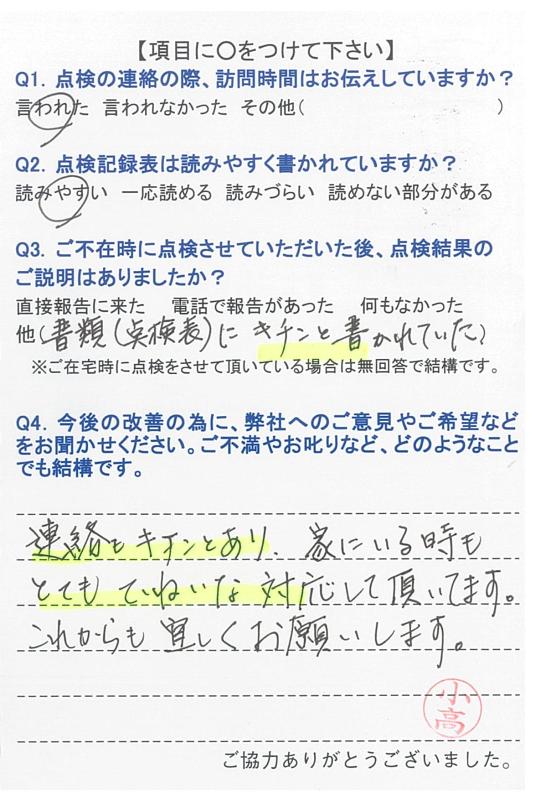 【項目に○をつけて下さい】
Q1. 点検の連絡の際、訪問時間はお伝えしていますか？
言われた 言われなかった その他( )
Q2. 点検記録表は読みやすく書かれていますか？
読みやすい 一応読める 読みづらい 読めない部分がある
Q3. ご不在時に点検させていただいた後、点検結果の
ご説明はありましたか？
直接報告に来た 電話で報告があった 何もなかった
他(書類(点検表)にキチンと書かれていた)
※ご在宅時に点検をさせて頂いている場合は無回答で結構です。
Q4. 今後の改善の為に、弊社へのご意見やご希望など
をお聞かせください。ご不満やお叱りなど、どのようなこと
でも結構です。
連絡もキチンとあり、家にいる時も
とてもていねいな対応して頂いてます。
これからも宜しくお願いします。
小高
ご協力ありがとうございました。